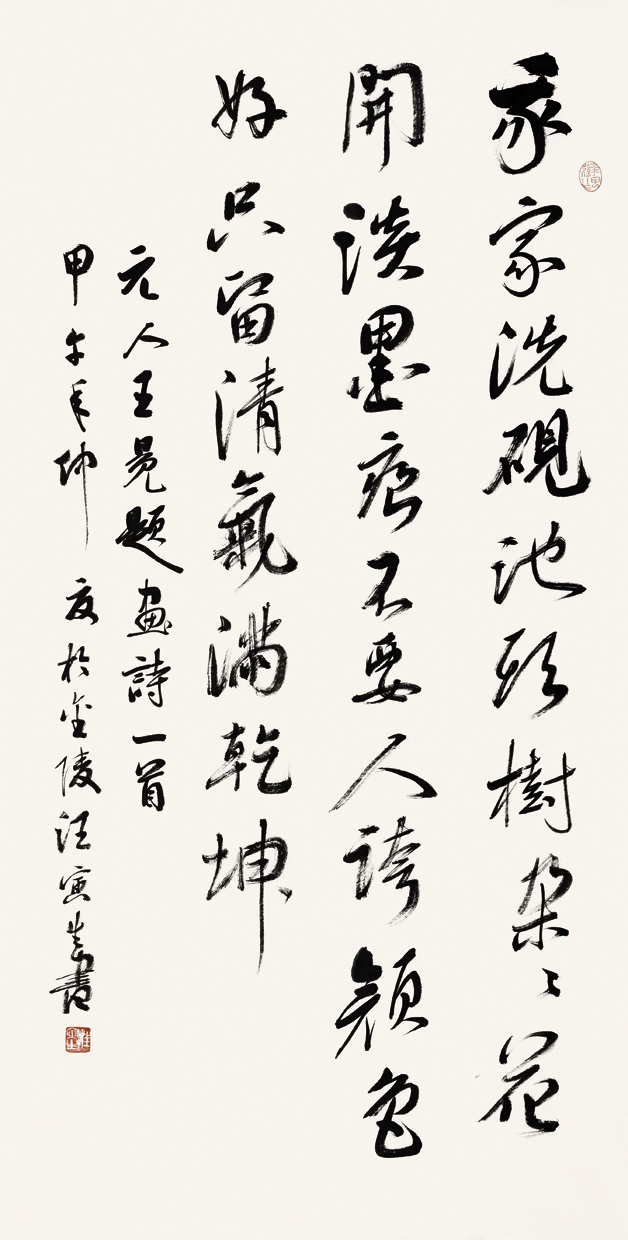 我家洗硯池頭樹朵々花
開淡墨痕不要人誇顏色
好只留清氣滿乾坤
元人王冕題畫詩一首
甲午年仲夏於金陵汪寅生書